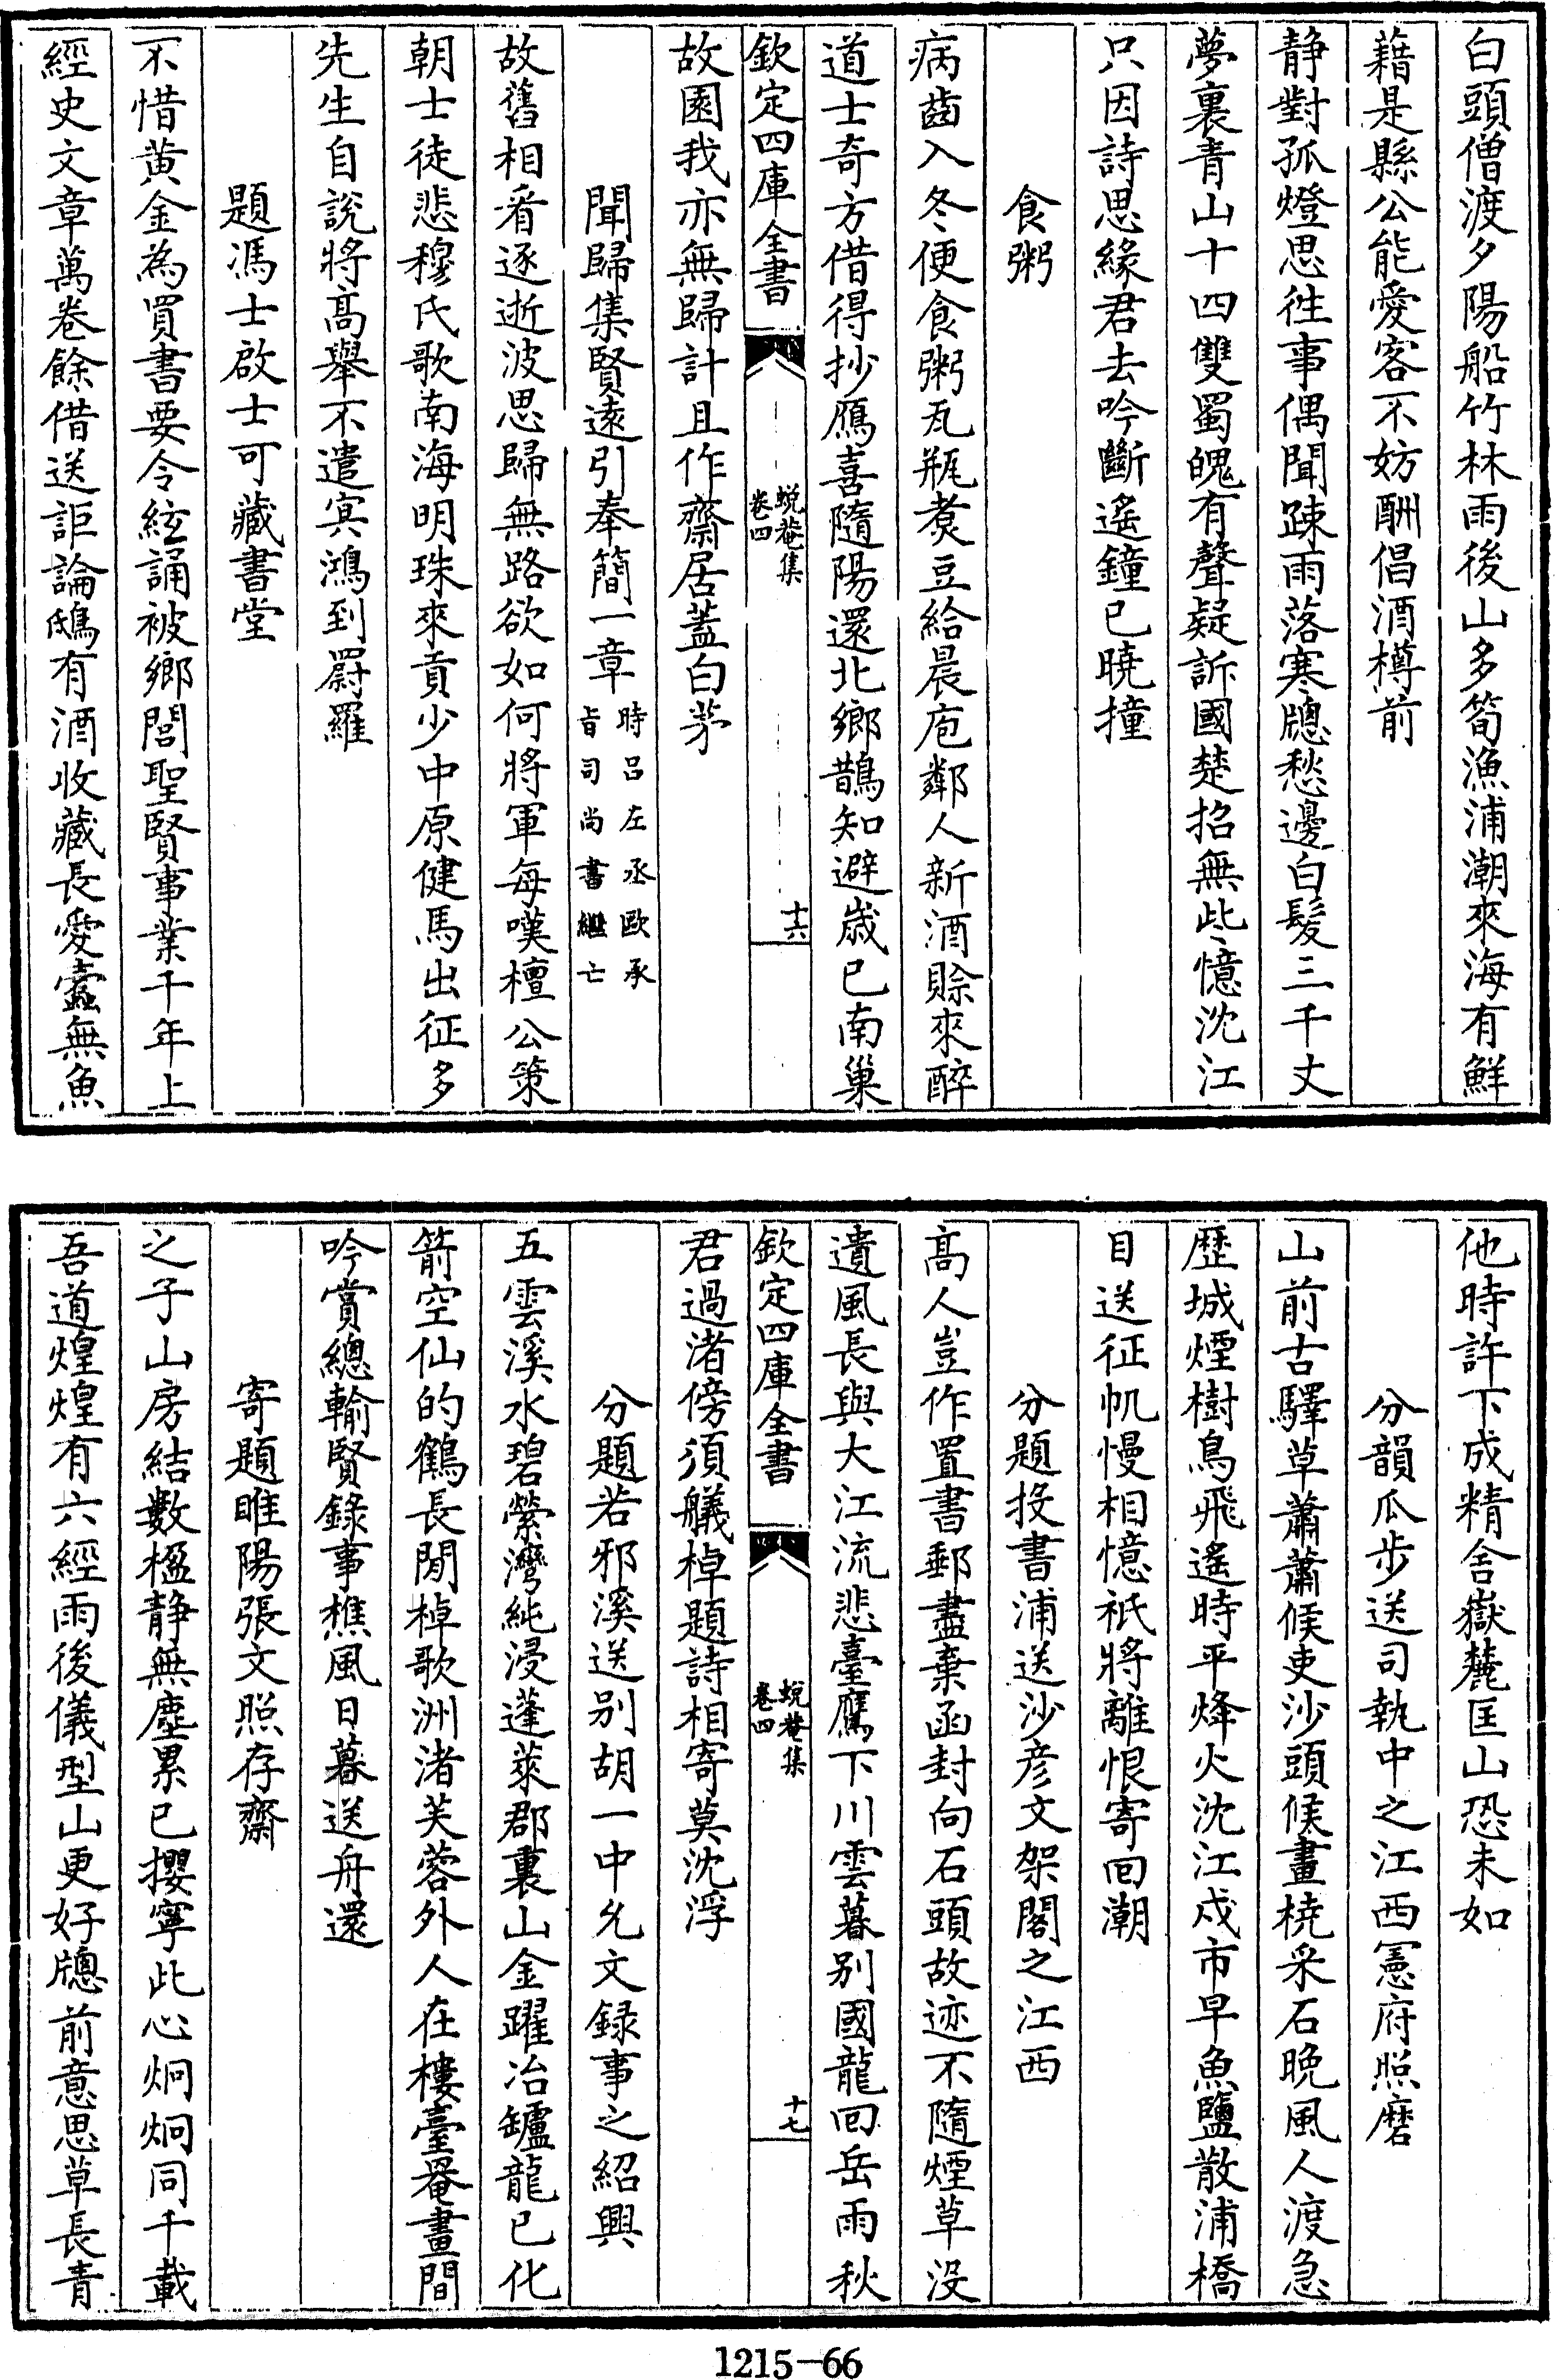 白頭僧渡夕陽船竹林雨後山多筍漁浦潮來海有鮮
藉是縣公能愛客不妨酬倡酒樽前
静對孤燈思徃事偶聞踈雨落寒牕愁邊白髪三千丈
夢裏青山十四雙蜀魄有聲疑訴國楚招無些憶沈江
只因詩思緣君去吟斷遙鐘已曉撞
食粥
病齒入冬便食粥瓦瓶煑豆給晨庖鄰人新酒賒來醉
道士奇方借得抄鴈喜隨陽還北鄉鵲知避嵗已南巢
欽定四庫全書
蛻菴集
卷四
十六
故園我亦無歸計且作齋居蓋白茅
聞歸集賢遠引奉簡一章時吕左丞歐承
旨司尚書繼亡
故舊相看逐逝波思歸無路欲如何將軍每嘆檀公策
朝士徒悲穆氏歌南海明珠來貢少中原健馬出征多
先生自說將髙舉不遣㝠鴻到罻羅
題馮士啟士可藏書堂
不惜黄金為買書要令絃誦被鄉閭聖賢事業千年上
經史文章萬卷餘借送詎論鴟有酒收藏長愛蠧無魚
他時許下成精舍嶽麓匡山恐未如
分韻瓜步送司執中之江西憲府照磨
山前古驛草蕭蕭候吏沙頭候畫橈采石晚風人渡急
歴城煙樹鳥飛遙時平烽火沈江戍市早魚鹽散浦橋
目送征帆慢相憶祇將離恨寄囘潮
分題投書浦送沙彦文架閣之江西
髙人豈作置書郵盡棄函封向石頭故迹不隨煙草没
遺風長與大江流悲臺鷹下川雲暮别國龍囘岳雨秋
欽定四庫全書
蛻菴集
卷四
十七
君過渚傍須艤棹題詩相寄莫沈浮
分題若邪溪送别胡一中允文録事之紹興
五雲溪水碧縈灣純浸蓬萊郡裏山金躍冶鑪龍已化
箭空仙的鶴長閒棹歌洲渚芙蓉外人在樓臺罨畫間
吟賞總輸賢錄事樵風日暮送舟還
寄題睢陽張文照存齋
之子山房結數楹静無塵累已攖寧此心炯炯同千載
吾道煌煌有六經雨後儀型山更好牕前意思草長青
1215-66